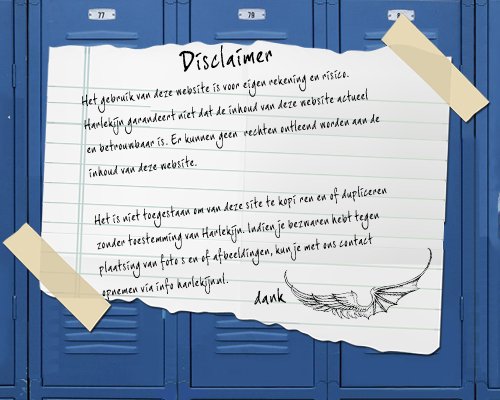 77
79
Disclaimer
Het gebruik van deze website is voor eigen rekening en risico.
Harlekijn garandeert niet dat de inhoud van deze website actueel
en betrouwbaar is. Er kunnen geen rechten ontleend worden aan de
inhoud van deze website.
Het is niet toegestaan om van deze site te kopi ren en of dupliceren
zonder toestemming van Harlekijn. Indien je bezwaren hebt tegen
plaatsing van foto s en of afbeeldingen, kun je met ons contact
opnemen via info harlekijnunl.
dank